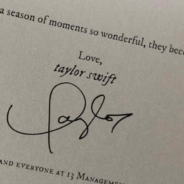 a season of moments so wonderful, they bec
Love,
taylor swift
Taylor
AND EVERYONE AT 13 MANAGEM